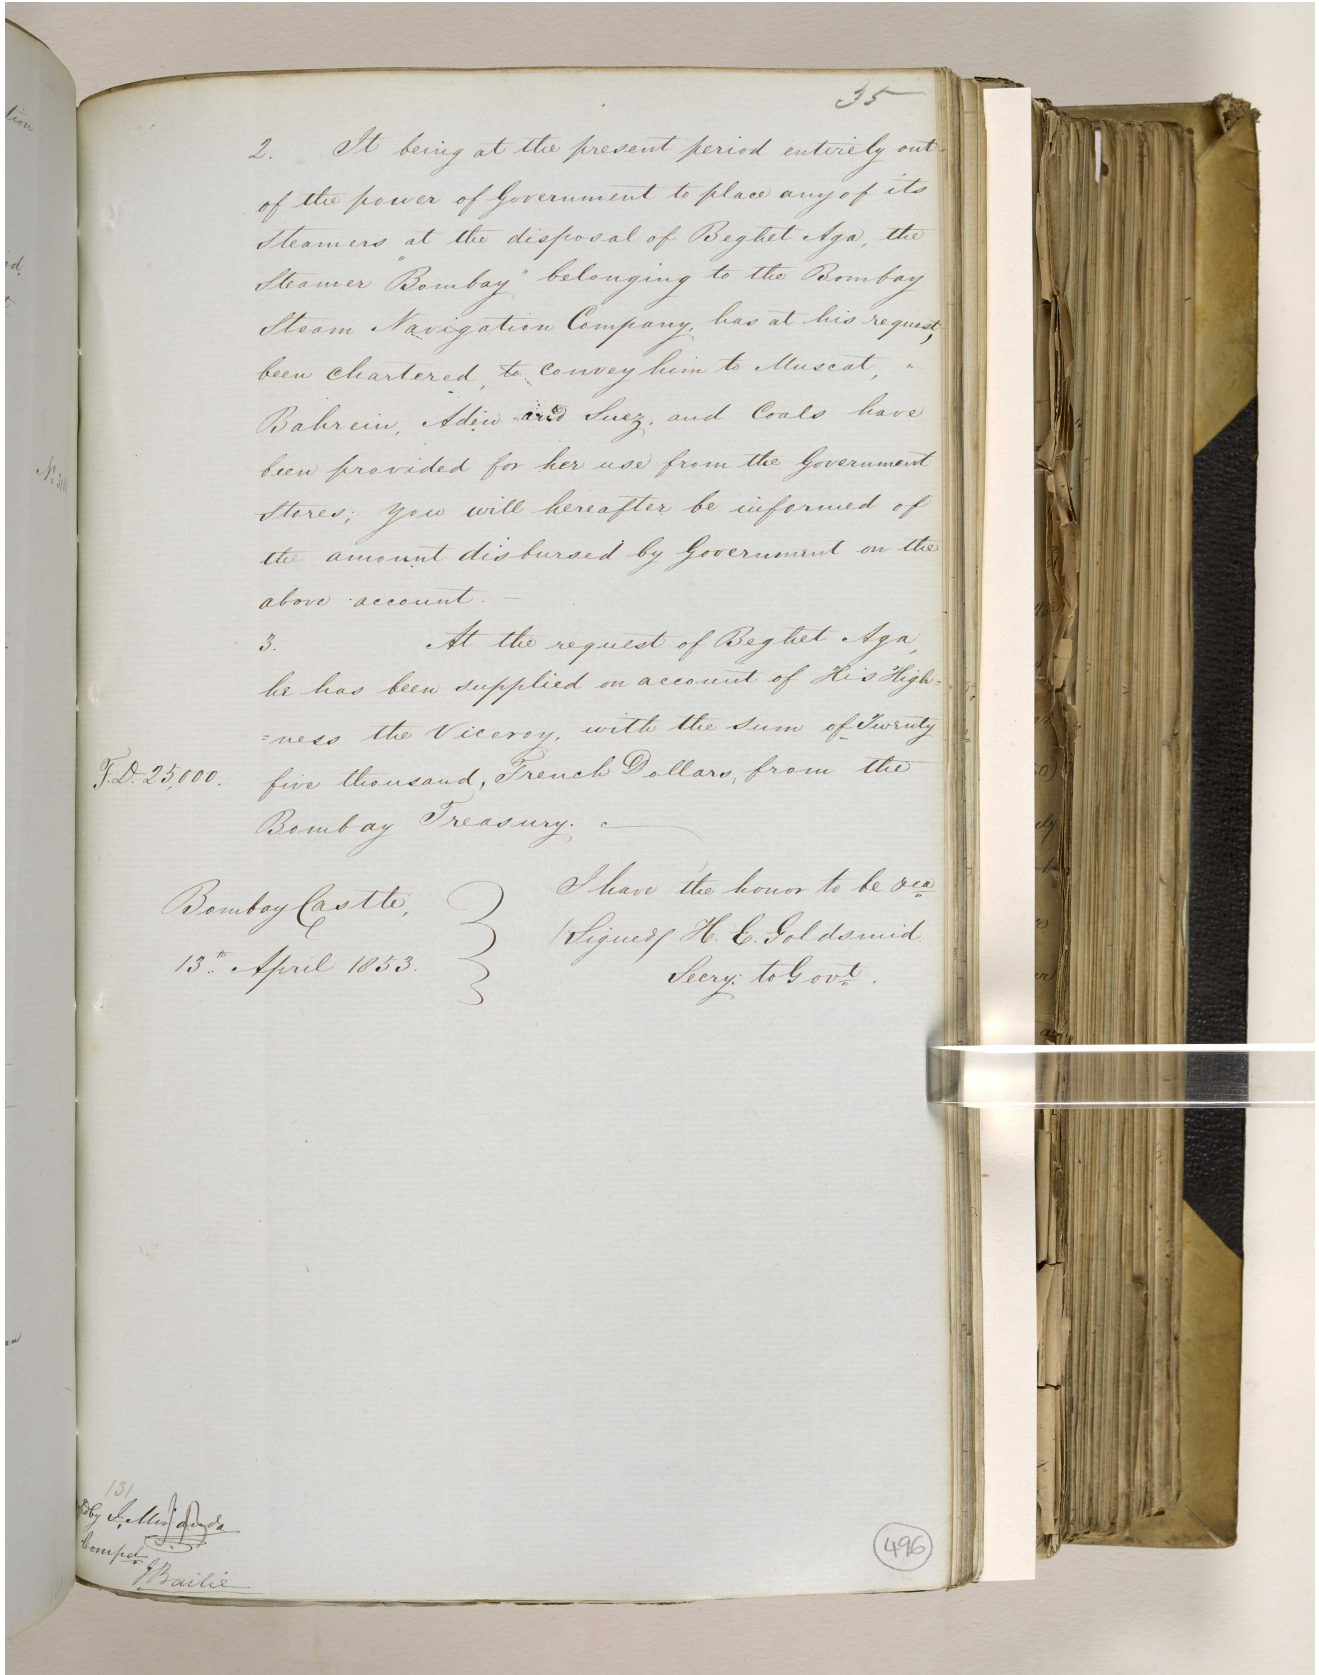 35
2. It being at the present period entirely out
of the power of Government to place any of its
Steamers at the disposal of Beghet Aga, the
Steamer "Bombay" belonging to the Bombay
Steam Navigation Company, has at his request,
been chartered, to convey him to Muscat,
Bahrein, Aden and Suez, and Coals have
been provided for her use from the Government
Stores; you will hereafter be informed of
the amount disbursed by Government on the
above account.
3. At the request of Beghet Aga,
he has been supplied on account of His High=
=ness the Viceroy, with the sum of Twenty
F.D. 25,000. five thousand, French Dollars, from the
Bombay Treasury.
I have the honor to be &ca
Bombay Castle,
/Signed/ H. E. Goldsmid
13th April 1853.
Secry: to Govt.
131
Compd
J Bailie
496